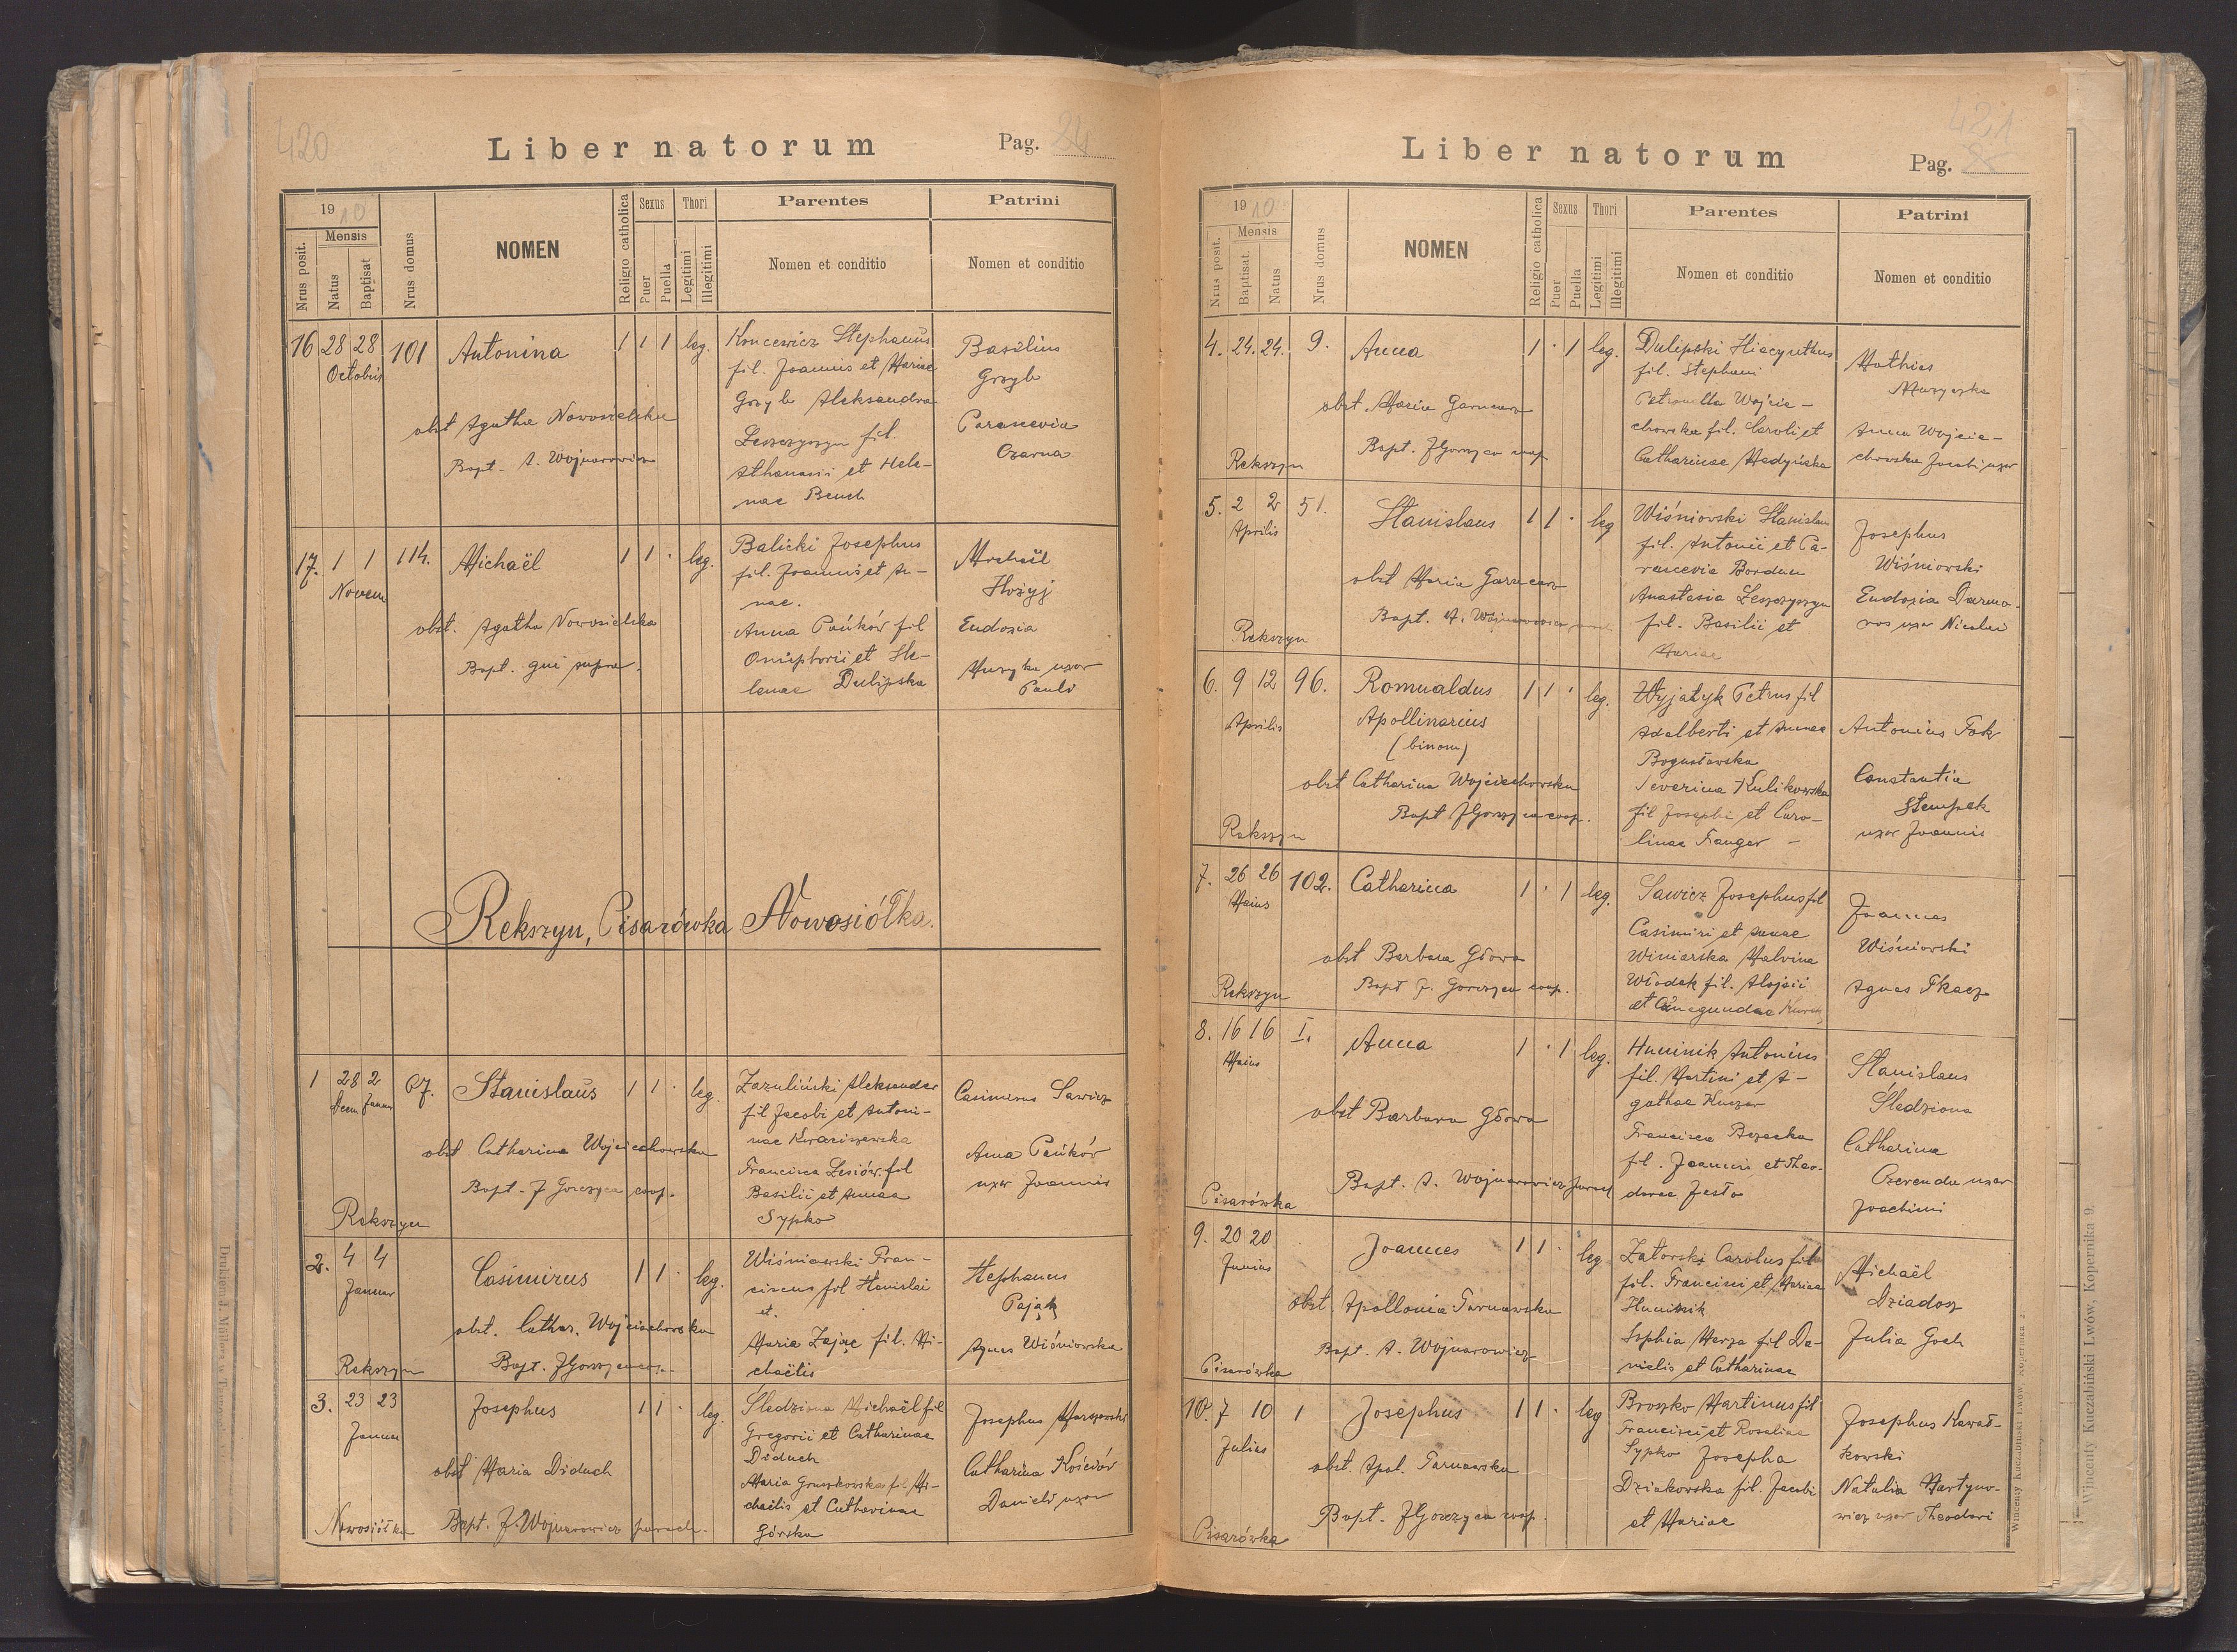 420
Liber natorum
Pag. 24
19 10
Mensis
Nrus posit.
Natus
Baptisat
Nrus domus
NOMEN
Religio catholica
Sexus
Puer
Puella
Thori
Legitimi
Illegitimi
Parentes
Nomen et conditio
Patrini
Nomen et conditio
16 28 28 101 Antonina 1 1 1 leg.
Octobris
obst Agatha Nowosielska
Bapt. A. Wojnarowicz
Koncewicz Stephanus
fil. Joannis et Mariae
Grzyb Aleksandra
Leszczyszyn fil.
Athanasii et Hele-
nae Bench
Basilius
Grzyb
Parascevia
Czarna
17. 1 1 114. Michaël 1 1 · leg.
Novem
obst. Agatha Nowosielska
Bapt. qui supra.
Balicki Josephus
fil. Joannis et An-
nae.
Anna Pańków fil
Onuphrii et He-
lenae Dulipska
Michaël
Hożyj
Eudoxia
Muzyka uxor
Pauli
Rekszyn, Pisarówka Nowosiółka.
1 28 2 67. Stanislaus 1 1 · leg.
Decem Januar
obst Catharina Wojciechowska
Bapt. J Gorczyca coop.
Rekszyn
Zazuliński Aleksander
fil Jacobi et Antoni-
nae Kwaśniewska
Francisca Lesiów fil
Basilii et Annae
Sypko
Casimirus Sawicz
Anna Pańków
uxor Joannis
2. 4 4 Casimirus 1 1 · leg.
Januar
obst. Cathar. Wojciechowska
Bapt. J Gorczyca coop.
Rekszyn
Wiśniowski Fran-
ciscus fil Stanislai
et.
Maria Zając fil. Mi-
chaëlis
Stephanus
Pająk
Agnes Wiśniowska
3. 23 23 Josephus 1 1 · leg.
Januar
obst Maria Diduch
Bapt. J. Wojnarowicz paroch.
Nowosiółka
Śledziona Michaël fil
Gregorii et Catharinae
Diduch
Maria Gruszkowska fil. Mi-
chaëlis et Catharinae
Górska
Josephus
Catharina Kościów
Danieli uxor
421
Liber natorum
Pag. 25
19 10
Mensis
Nrus posit.
Baptisat.
Natus
Nrus domus
NOMEN
Religio catholica
Sexus
Puer
Puella
Thori
Legitimi
Illegitimi
Parentes
Nomen et conditio
Patrini
Nomen et conditio
4. 24. 24. 9. Anna 1 · 1 leg.
obst. Maria Garncarz
Bapt. J Gorczyca coop
Rekszyn
Dulipski Hiacynthus
fil. Stephani
Petronella Wojcie-
chowska fil. Caroli et
Catharinae Madyńska
Mathias
Anna Wojcie-
chowska Jacobi uxor
5. 2 2 51. Stanislaus 1 1 · leg
Aprilis
obst Maria Garncarz
Bapt. A. Wojnarowicz
Rekszyn
Wiśniowski Stanislaus
fil. Antonii et Pa-
rascevia Bordun
Anastasia Leszczyszyn
fil. Basilii et
Mariae
Josephus
Wiśniowski
Eudoxia Darmo-
ros uxor Nicolai
6. 9 12 96. Romualdus 1 1 · leg.
Aprilis
Apollinarius
(binom)
obst Catharina Wojciechowska
Bapt J Gorczyca coop.
Rekszyn
Wyjatyk Petrus fil
Adalberti et Annae
Bogusławska
Severina Kulikowska
fil Josephi et Caro-
linae Franger -
Antonius Fok
Constantia
Stempak
uxor Joannis
7. 26 26 102. Catharina 1 · 1 leg.
Maius
obst Barbara Głowa
Bapt J. Gorczyca coop.
Rekszyn
Sawicz Josephus fil
Casimiri et Annae
Winiarska Malvina
Włodek fil. Alojsii
et Cunegundae
Joannes
Wiśniowski
Agnes Tkacz
8. 16 16 I. Anna 1 · 1 leg.
Maius
obst Barbara Głowa
Bapt. A. Wojnarowicz paroch
Pisarówka
Huminik Antonius
fil. Martini et A-
gathae Kuczer
Francisca Bezacka
fil. Joannis et Theo-
dorae Jesło
Stanislaus
Śledziona
Catharina
Czerenda uxor
Joachimi
9. 20 20 Joannes 1 1 · leg
Junius
obst. Apollonia Tarnawska
Bapt. A. Wojnarowicz
Pisarówka
Zatorski Carolus fil
fil. Francisci et Mariae
Huminik
Sophia Merza fil Da-
nielis et Catharinae
Michaël
Dziadosz
Julia Goch
10. 7 10 1 Josephus 1 1 · leg
Julius
obst. Apol. Tarnawska
Bapt. J Gorczyca coop.
Pisarówka
Broszko Martinus fil
Francisci et Rosaliae
Sypko Josepha
Dziakowska fil. Jacobi
et Mariae
Josephus Kawał-
kowski
Natalia Martyno-
wicz uxor Theodori
Wincenty Kuczabiński Lwów, Kopernika 9.